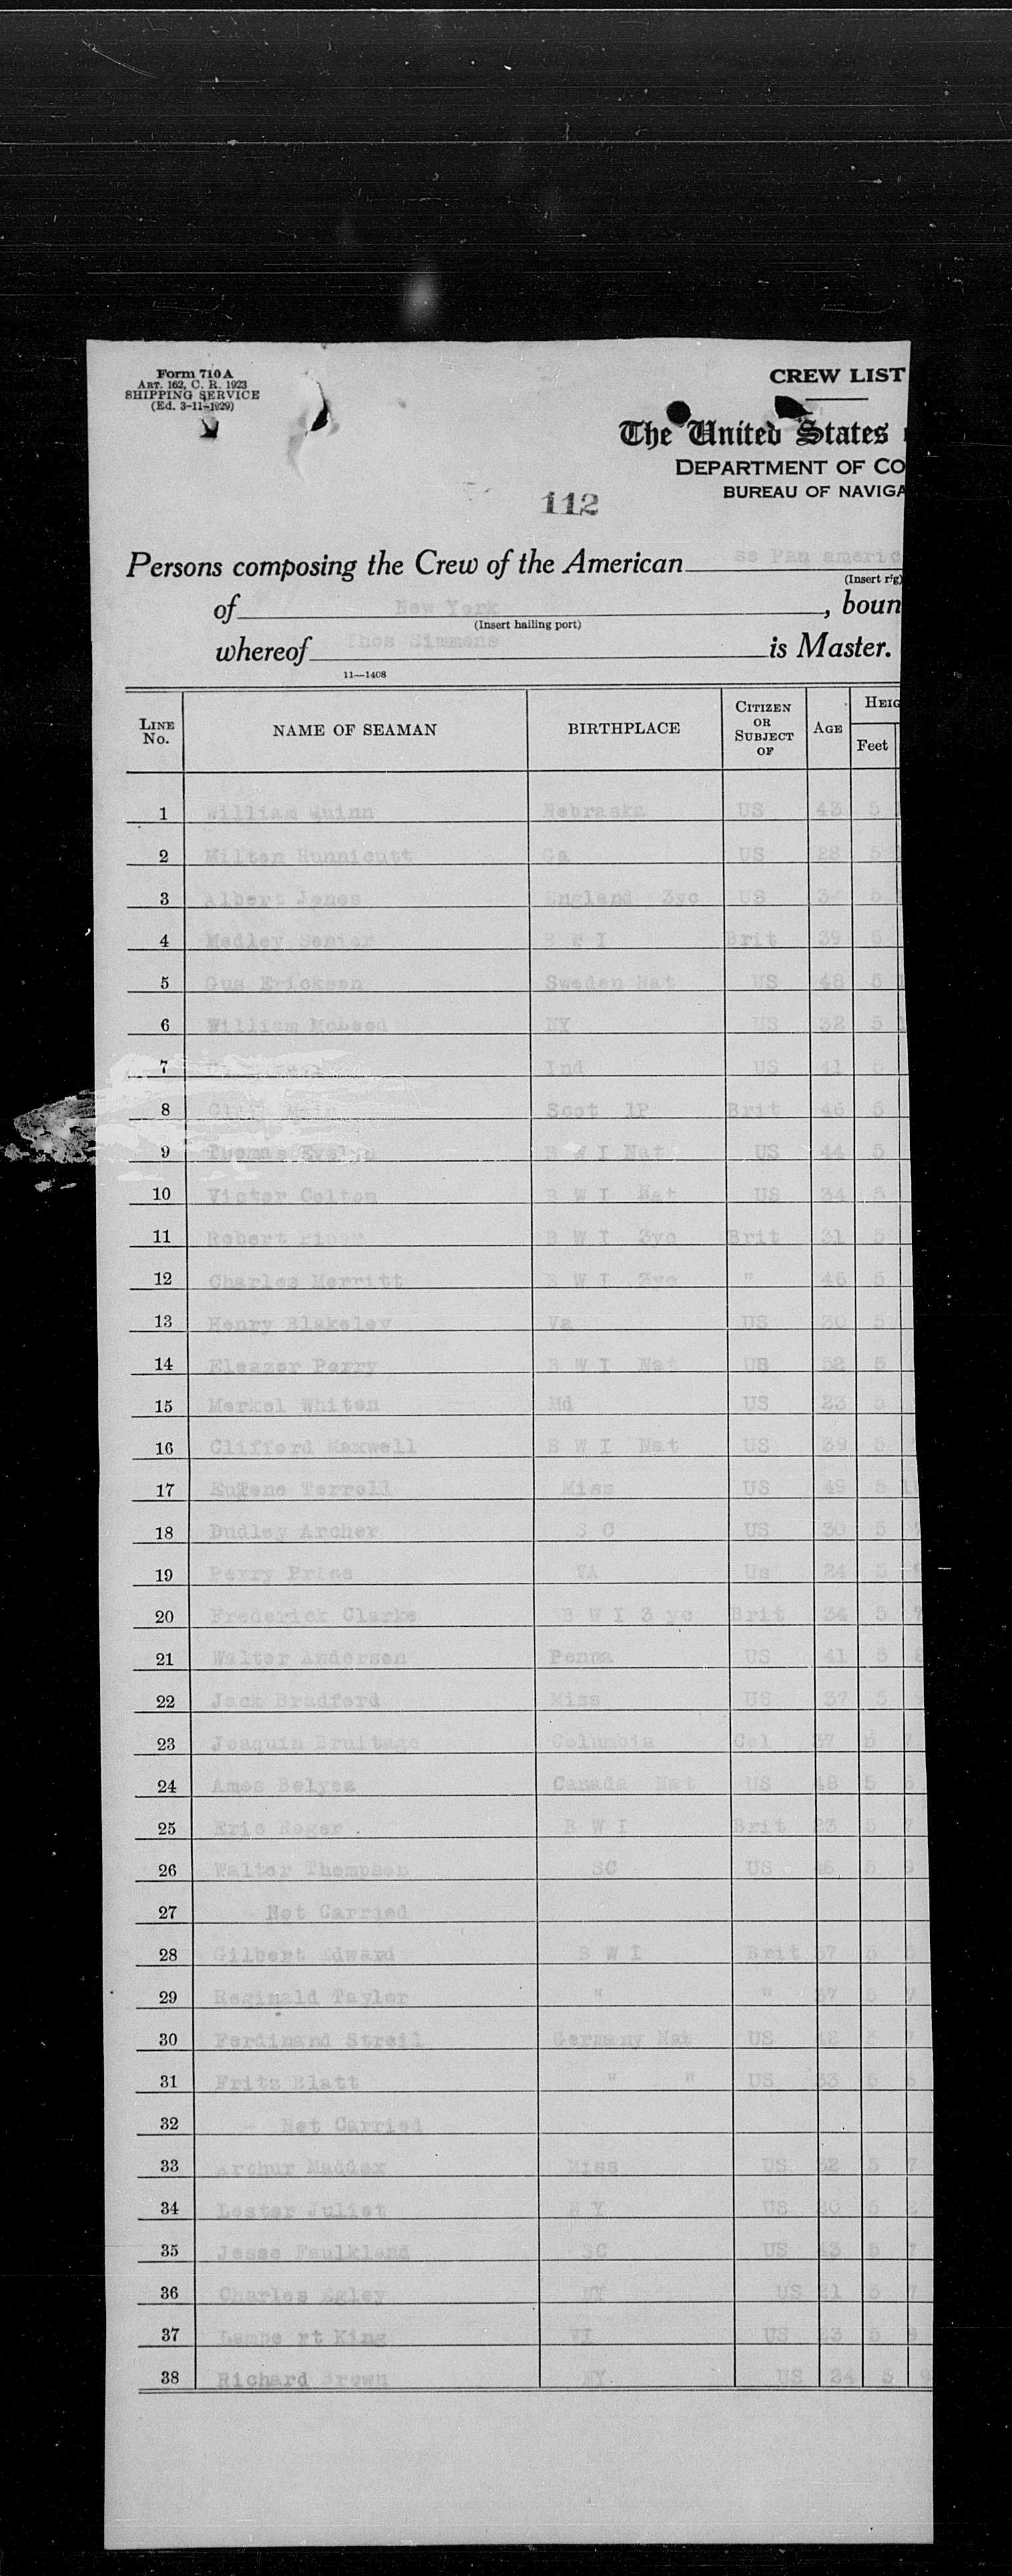 Form 710 A
ART. 162, C. R. 1923
SHIPPING SERVICE
(Ed. 3-11-1929)
CREW LIST
The United States
DEPARTMENT OF CO
BUREAU OF NAVIGA
112
Persons composing the Crew of the American ss Pan americ
(Insert rig)
of New York, boun
(Insert hailing port)
whereof Thos Simmons is Master.
11—1408
LINE No. NAME OF SEAMAN BIRTHPLACE CITIZEN OR SUBJECT OF AGE HEIG
Feet
1 William Quinn Nebraska US 43 5
2 Milton Hunnicutt Ga US 28 5
3 Albert Jones England 3yc US 34 5
4 Medley Senior B W I Brit 39 5
5 Gus Erickson Sweden Nat US 48 5
6 William McLeod NY US 32 5
7 Ind US 41 5
8 Scot 1P Brit 46 5
9 Thomas Evelyn B W I Nat US 44 5
10 Victor Colton B W I Nat US 34 5
11 Robert Piper B W I 3yc Brit 31 5
12 Charles Merritt B W I 3yc " 46 5
13 Henry Blakeley Va US 30 5
14 Eleazer Perry B W I Nat US 52 5
15 Merkel Whiten Md US 23 5
16 Clifford Maxwell B W I Nat US 39 5
17 Eugene Terrell Miss US 49 5
18 Dudley Archer S C US 30 5
19 Perry Price VA Us 24 5
20 Frederick Clarke B W I 3 yc Brit 34 5 7
21 Walter Anderson Penna US 41 5 8
22 Jack Bradford Miss US 37 5 9
23 Joaquin Bruitago Columbia Col 37 5 7
24 Amos Belyea Canada Nat US 48 5 6
25 Eric Roger B W I Brit 23 5 7
26 Walter Thompson SC US 46 5 9
27 Not Carried
28 Gilbert Edward B W I Brit 37 5 5
29 Reginald Taylor " " 37 5 7
30 Ferdinand Streil Germany Nat US 42 5 7
31 Fritz Blatt " " US 33 5 5
32 - Not Carried
33 Arthur Maddox Miss US 32 5 7
34 Lester Juliet N Y US 20 5
35 Jesse Faulkland SC US 43 5 7
36 Charles Egley NY US 21 5 7
37 Lambe rt King VI US 33 5 9
38 Richard Brown NY US 24 5 9